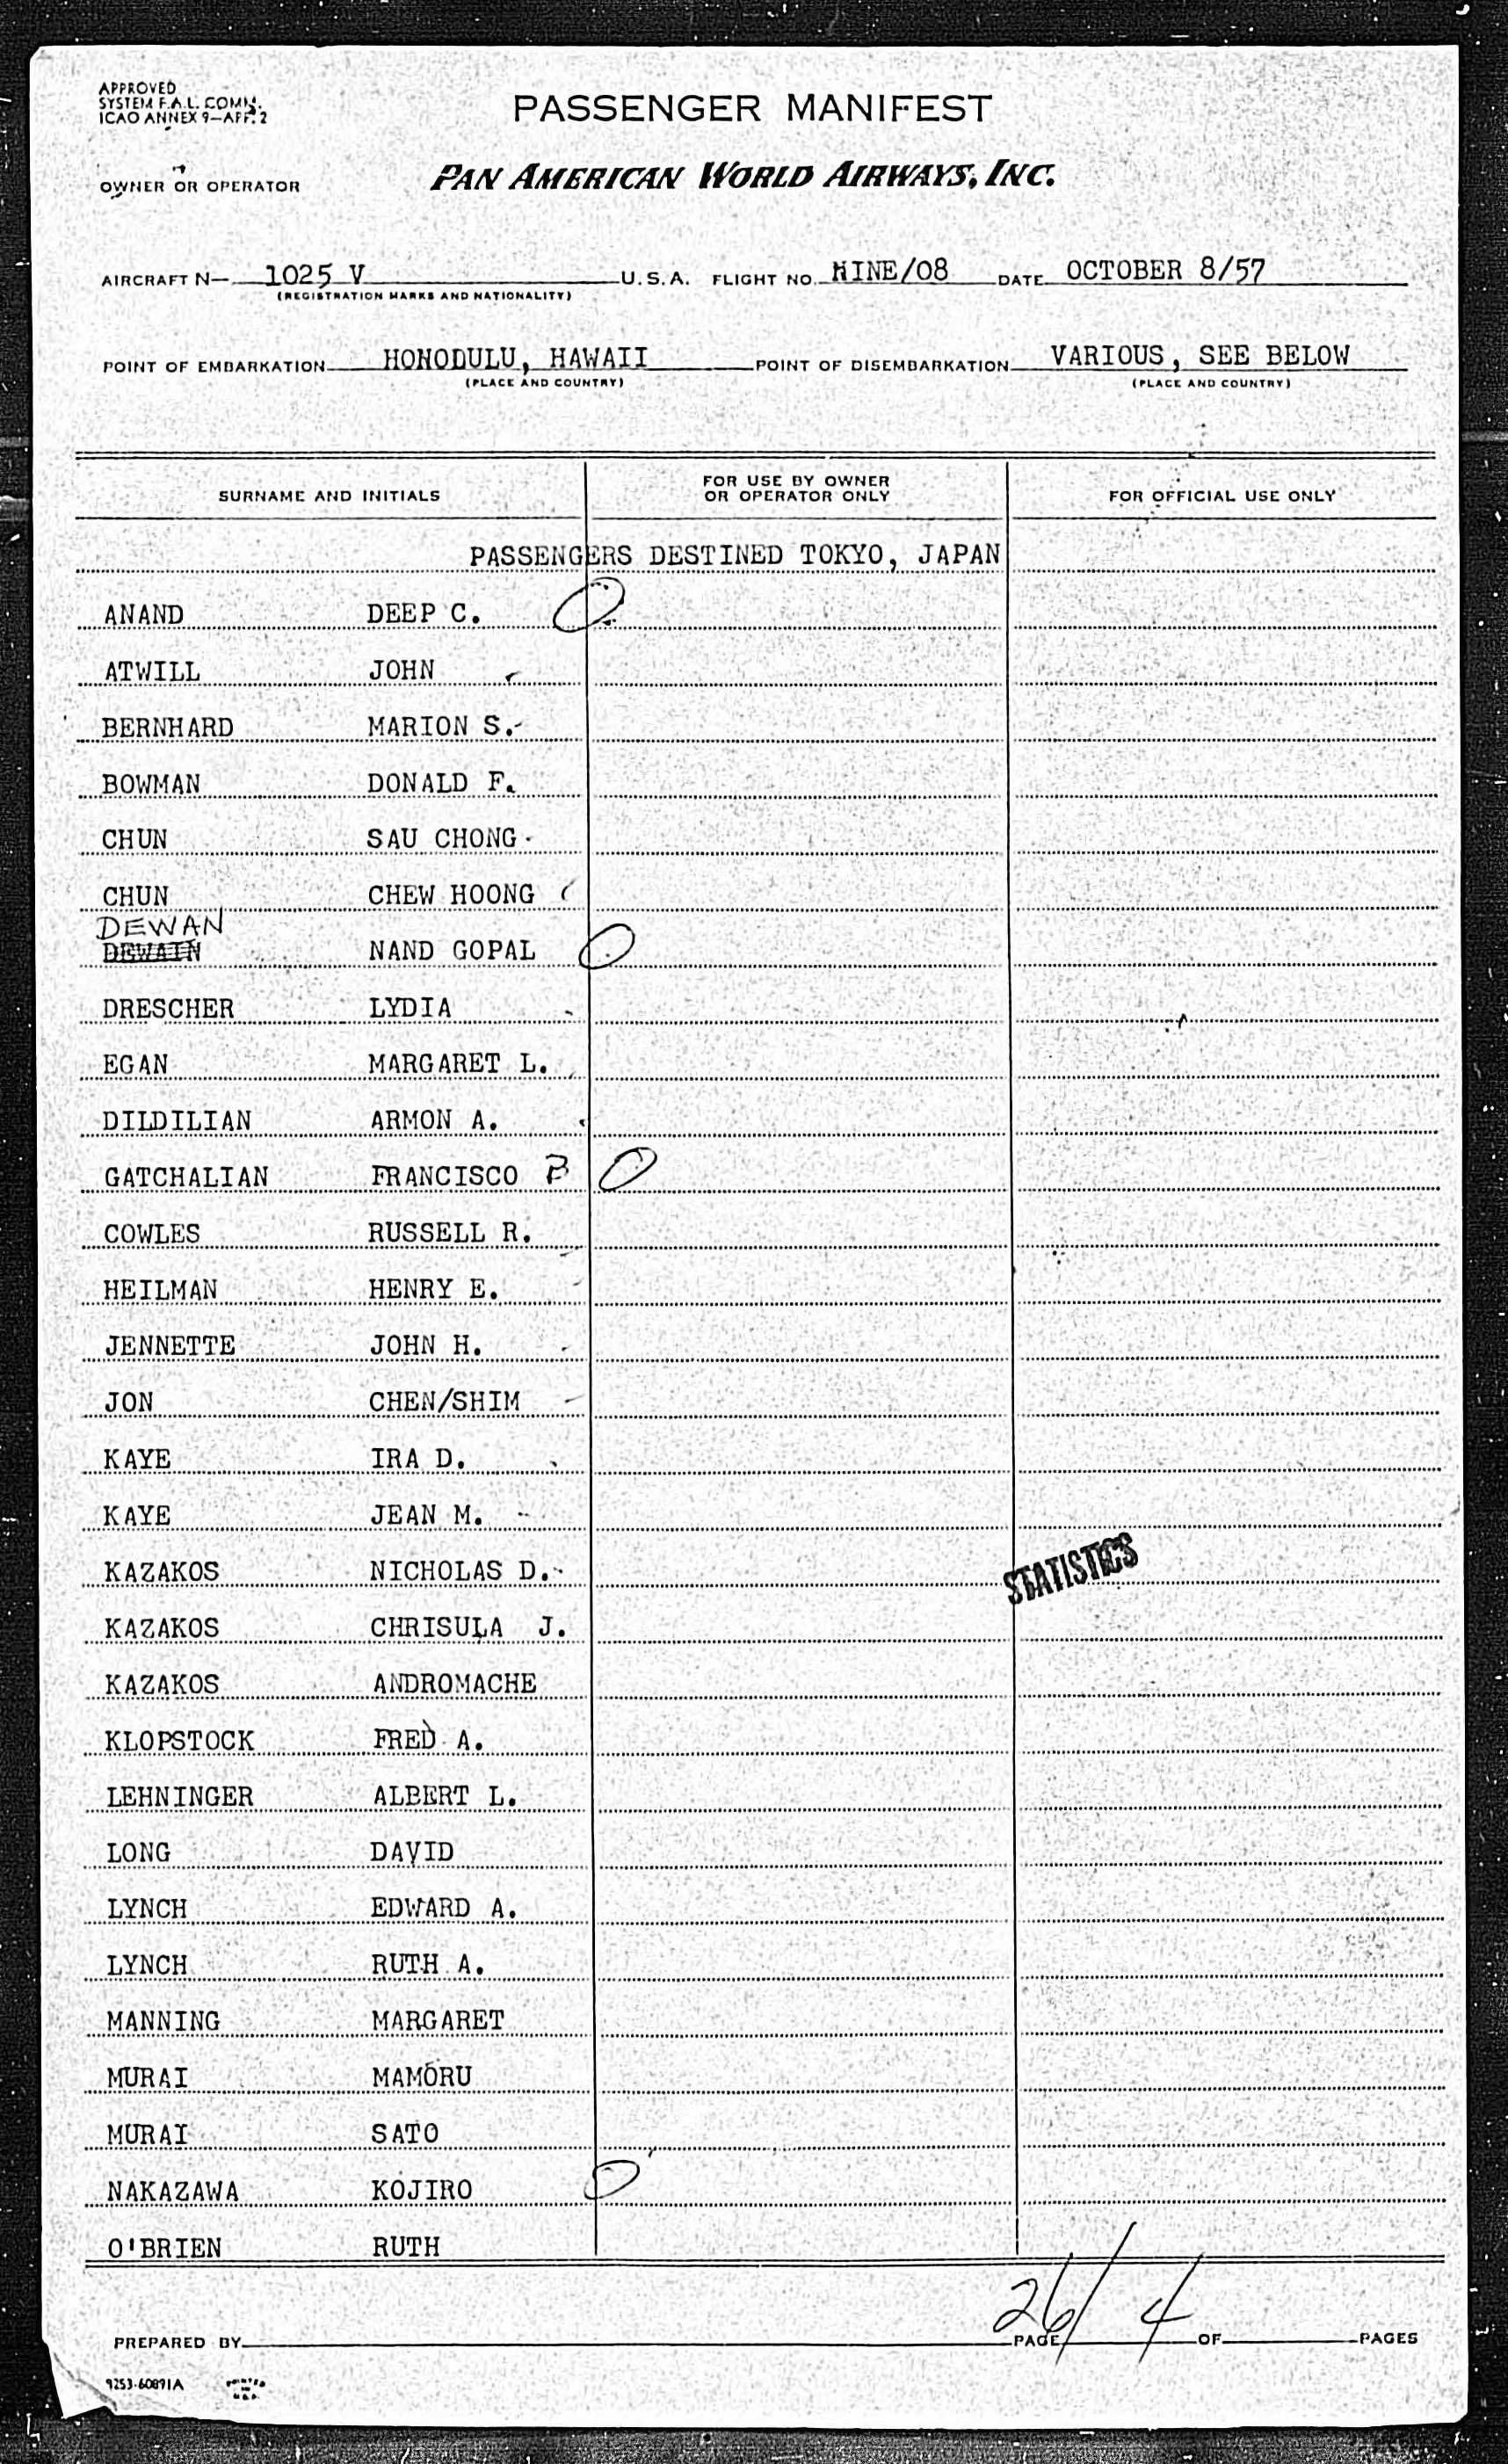 APPROVED
SYSTEM F.A.L. COMM.
ICAO ANNEX 9—APP. 2
PASSENGER MANIFEST
OWNER OR OPERATOR PAN AMERICAN WORLD AIRWAYS, INC.
AIRCRAFT N— 1025 V U.S.A. FLIGHT NO. NINE/08 DATE OCTOBER 8/57
(REGISTRATION MARKS AND NATIONALITY)
POINT OF EMBARKATION HONODULU, HAWAII POINT OF DISEMBARKATION VARIOUS, SEE BELOW
(PLACE AND COUNTRY) (PLACE AND COUNTRY)
SURNAME AND INITIALS FOR USE BY OWNER OR OPERATOR ONLY FOR OFFICIAL USE ONLY
PASSENGERS DESTINED TOKYO, JAPAN
ANAND DEEP C.
ATWILL JOHN
BERNHARD MARION S.
BOWMAN DONALD F.
CHUN SAU CHONG
CHUN CHEW HOONG
DEWAN
DEWAIN NAND GOPAL
DRESCHER LYDIA
EGAN MARGARET L.
DILDILIAN ARMON A.
GATCHALIAN FRANCISCO B
COWLES RUSSELL R.
HEILMAN HENRY E.
JENNETTE JOHN H.
JON CHEN/SHIM
KAYE IRA D.
KAYE JEAN M.
KAZAKOS NICHOLAS D. STATISTICS
KAZAKOS CHRISULA J.
KAZAKOS ANDROMACHE
KLOPSTOCK FRED A.
LEHNINGER ALBERT L.
LONG DAVID
LYNCH EDWARD A.
LYNCH RUTH A.
MANNING MARGARET
MURAI MAMORU
MURAI SATO
NAKAZAWA KOJIRO
O'BRIEN RUTH
26/ 4
PREPARED BY PAGE OF PAGES
9253-60891A PRINTED IN U.S.A.